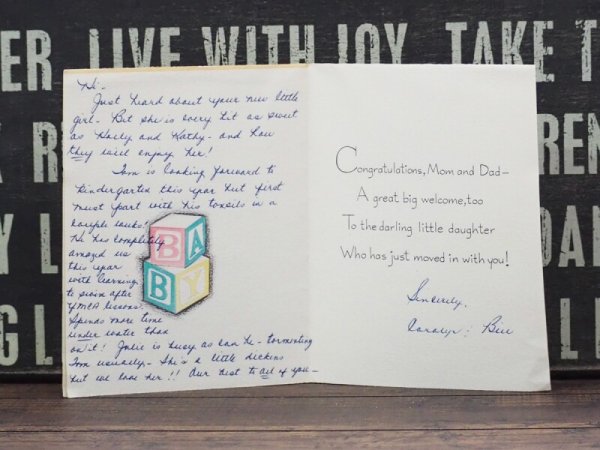 ER LIVE WITH JOY TAKE T
Hi -
Just heard about your new little
girl. But she is every bit as sweet
as Hardy and Kathy - and how
they will enjoy her!
Tom is looking forward to
kindergarten this year but first
must part with his tonsils in a
couple weeks.
He has completely
amazed us
this year
with learning
to swim after
YMCA lessons.
Spends more time
under water than
on it! Julie is busy as can be - tormenting
Tom usually - She's a little dickens
but we love her!! Our best to all of you -
B A
B Y
Congratulations, Mom and Dad—
A great big welcome, too
To the darling little daughter
Who has just moved in with you!
Sincerely,
Carolyn & Bill
R
REN
Y L
DA
GL
LI